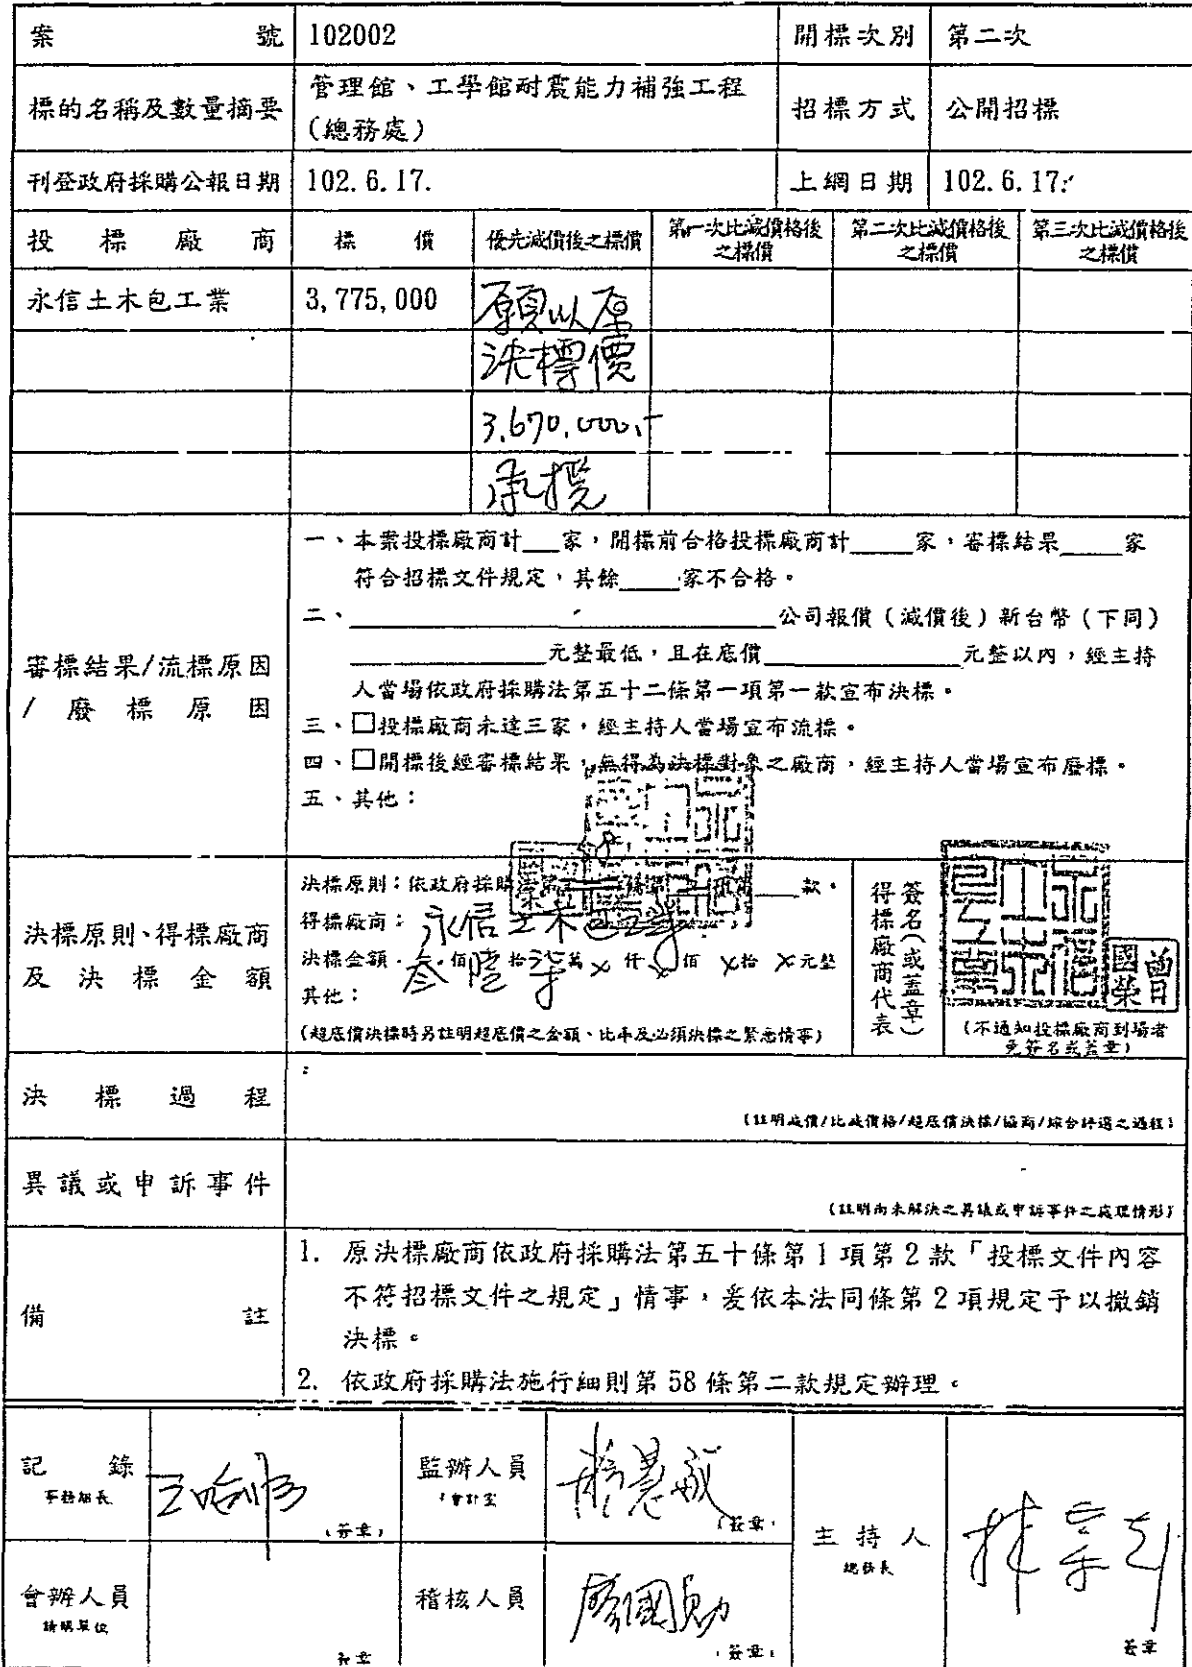 案號 102002 開標次別 第二次
標的名稱及數量摘要 管理館、工學館耐震能力補強工程
(總務處) 招標方式 公開招標
刊登政府採購公報日期 102.6.17. 上網日期 102.6.17.
投標廠商 標價 優先減價後之標價 第一次比減價格後之標價 第二次比減價格後之標價 第三次比減價格後之標價
永信土木包工業 3,775,000 願以原
決標價
3,670,000.-
承攬
審標結果/流標原因/廢標原因
一、本案投標廠商計___家,開標前合格投標廠商計_____家,審標結果_____家
符合招標文件規定,其餘_____家不合格。
二、_____公司報價(減價後)新台幣(下同)
_____元整最低,且在底價_____元整以內,經主持
人當場依政府採購法第五十二條第一項第一款宣布決標。
三、□投標廠商未達三家,經主持人當場宣布流標。
四、□開標後經審標結果,無得為決標對象之廠商,經主持人當場宣布廢標。
五、其他:
決標原則、得標廠商及決標金額
決標原則:依政府採購法第 條第 項第___款。
得標廠商:永信土木包工業
決標金額:叁佰陸拾柒萬×仟×佰×拾×元整
其他:
(超底價決標時另註明超底價之金額、比率及必須決標之緊急情事)
得標廠商代表簽名(或蓋章)
曾國榮
(不通知投標廠商到場者
免簽名或蓋章)
決標過程
(註明減價/比減價格/超底價決標/協商/綜合評選之過程)
異議或申訴事件
(註明尚未解決之異議或申訴事件之處理情形)
備註
1. 原決標廠商依政府採購法第五十條第1項第2款「投標文件內容
不符招標文件之規定」情事,爰依本法同條第2項規定予以撤銷
決標。
2. 依政府採購法施行細則第58條第二款規定辦理。
記錄
事務組長
(簽章)
監辦人員
(會計室)
(簽章)
主持人
總務長
簽章
會辦人員
請購單位
簽章
稽核人員
廖國勛
(簽章)